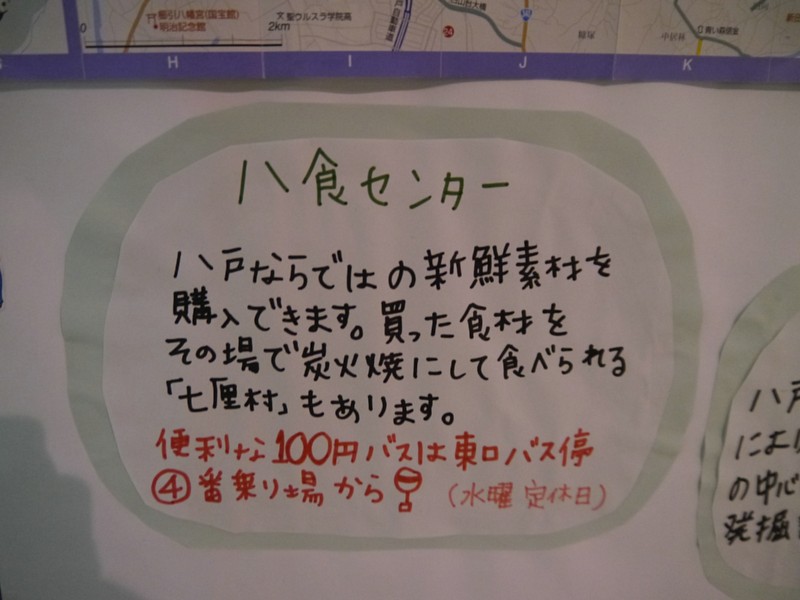 櫛引八幡宮(国宝館)
明治記念館
聖ウルスラ学院高
0
2km
H
I
J
K
八食センター
八戸ならではの新鮮素材を
購入できます。買った食材を
その場で炭火焼にして食べられる
「七厘村」もあります。
便利な100円バスは東口バス停
④番乗り場から
(水曜定休日)
八戸
により
の中心
発掘